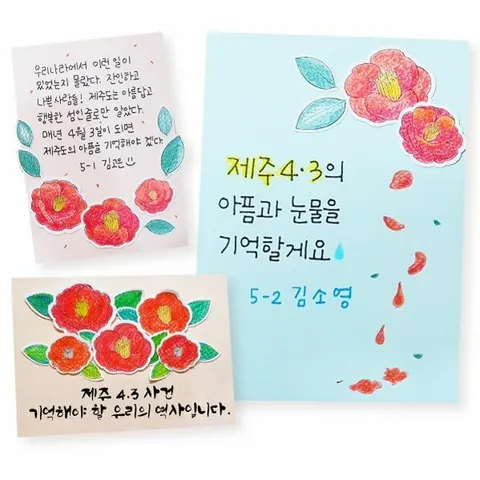 우리나라에서 이런 일이
있었는지 몰랐다. 잔인하고
나쁜사람들! 제주도는 아름답고
행복한 섬인줄로만 알았다.
매년 4월 3일이 되면
제주도의 아픔을 기억해야 겠다.
5-1 김고은
제주4·3의
아픔과 눈물을
기억할게요
5-2 김소영
제주 4.3 사건
기억해야 할 우리의 역사입니다.